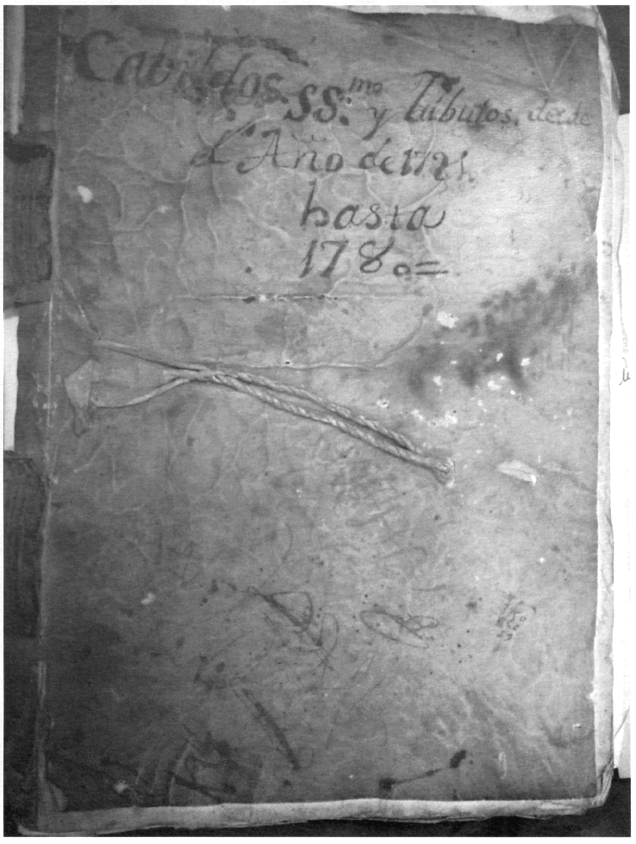 Cabildos. SS.mo y Tributos. desde
el Año de 1721.
hasta
1780=